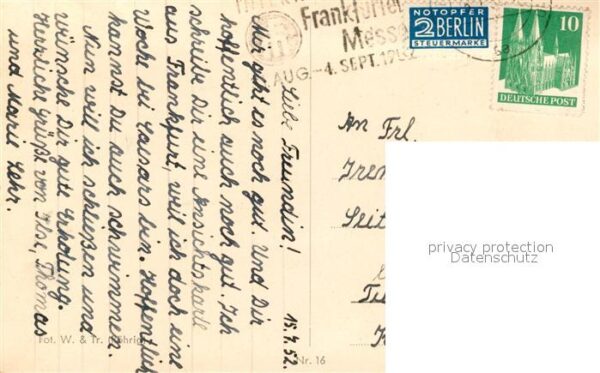 Frankfurter
Messe
AUG.-4. SEPT. 1952
NOTOPFER
2 BERLIN
STEUERMARKE
10
DEUTSCHE POST
15.7.52.
Liebe Freundin!
Mir geht es noch gut. Und Dir
hoffentlich auch noch gut. Ich
schreibe Dir eine Ansichtskarte
aus Frankfurt, weil ich doch eine
Woche bei Caesars bin. Hoffentlich
kannst Du auch schwimmen.
Nun will ich schließen und
wünsche Dir gute Erholung.
Herzliche Grüße von Ilse, Thomas
und Marie Lehr.
An Frl.
Iren
Seit
privacy protection
Datenschutz
Fot. W. & Tr. (Röhrig)
Nr. 16